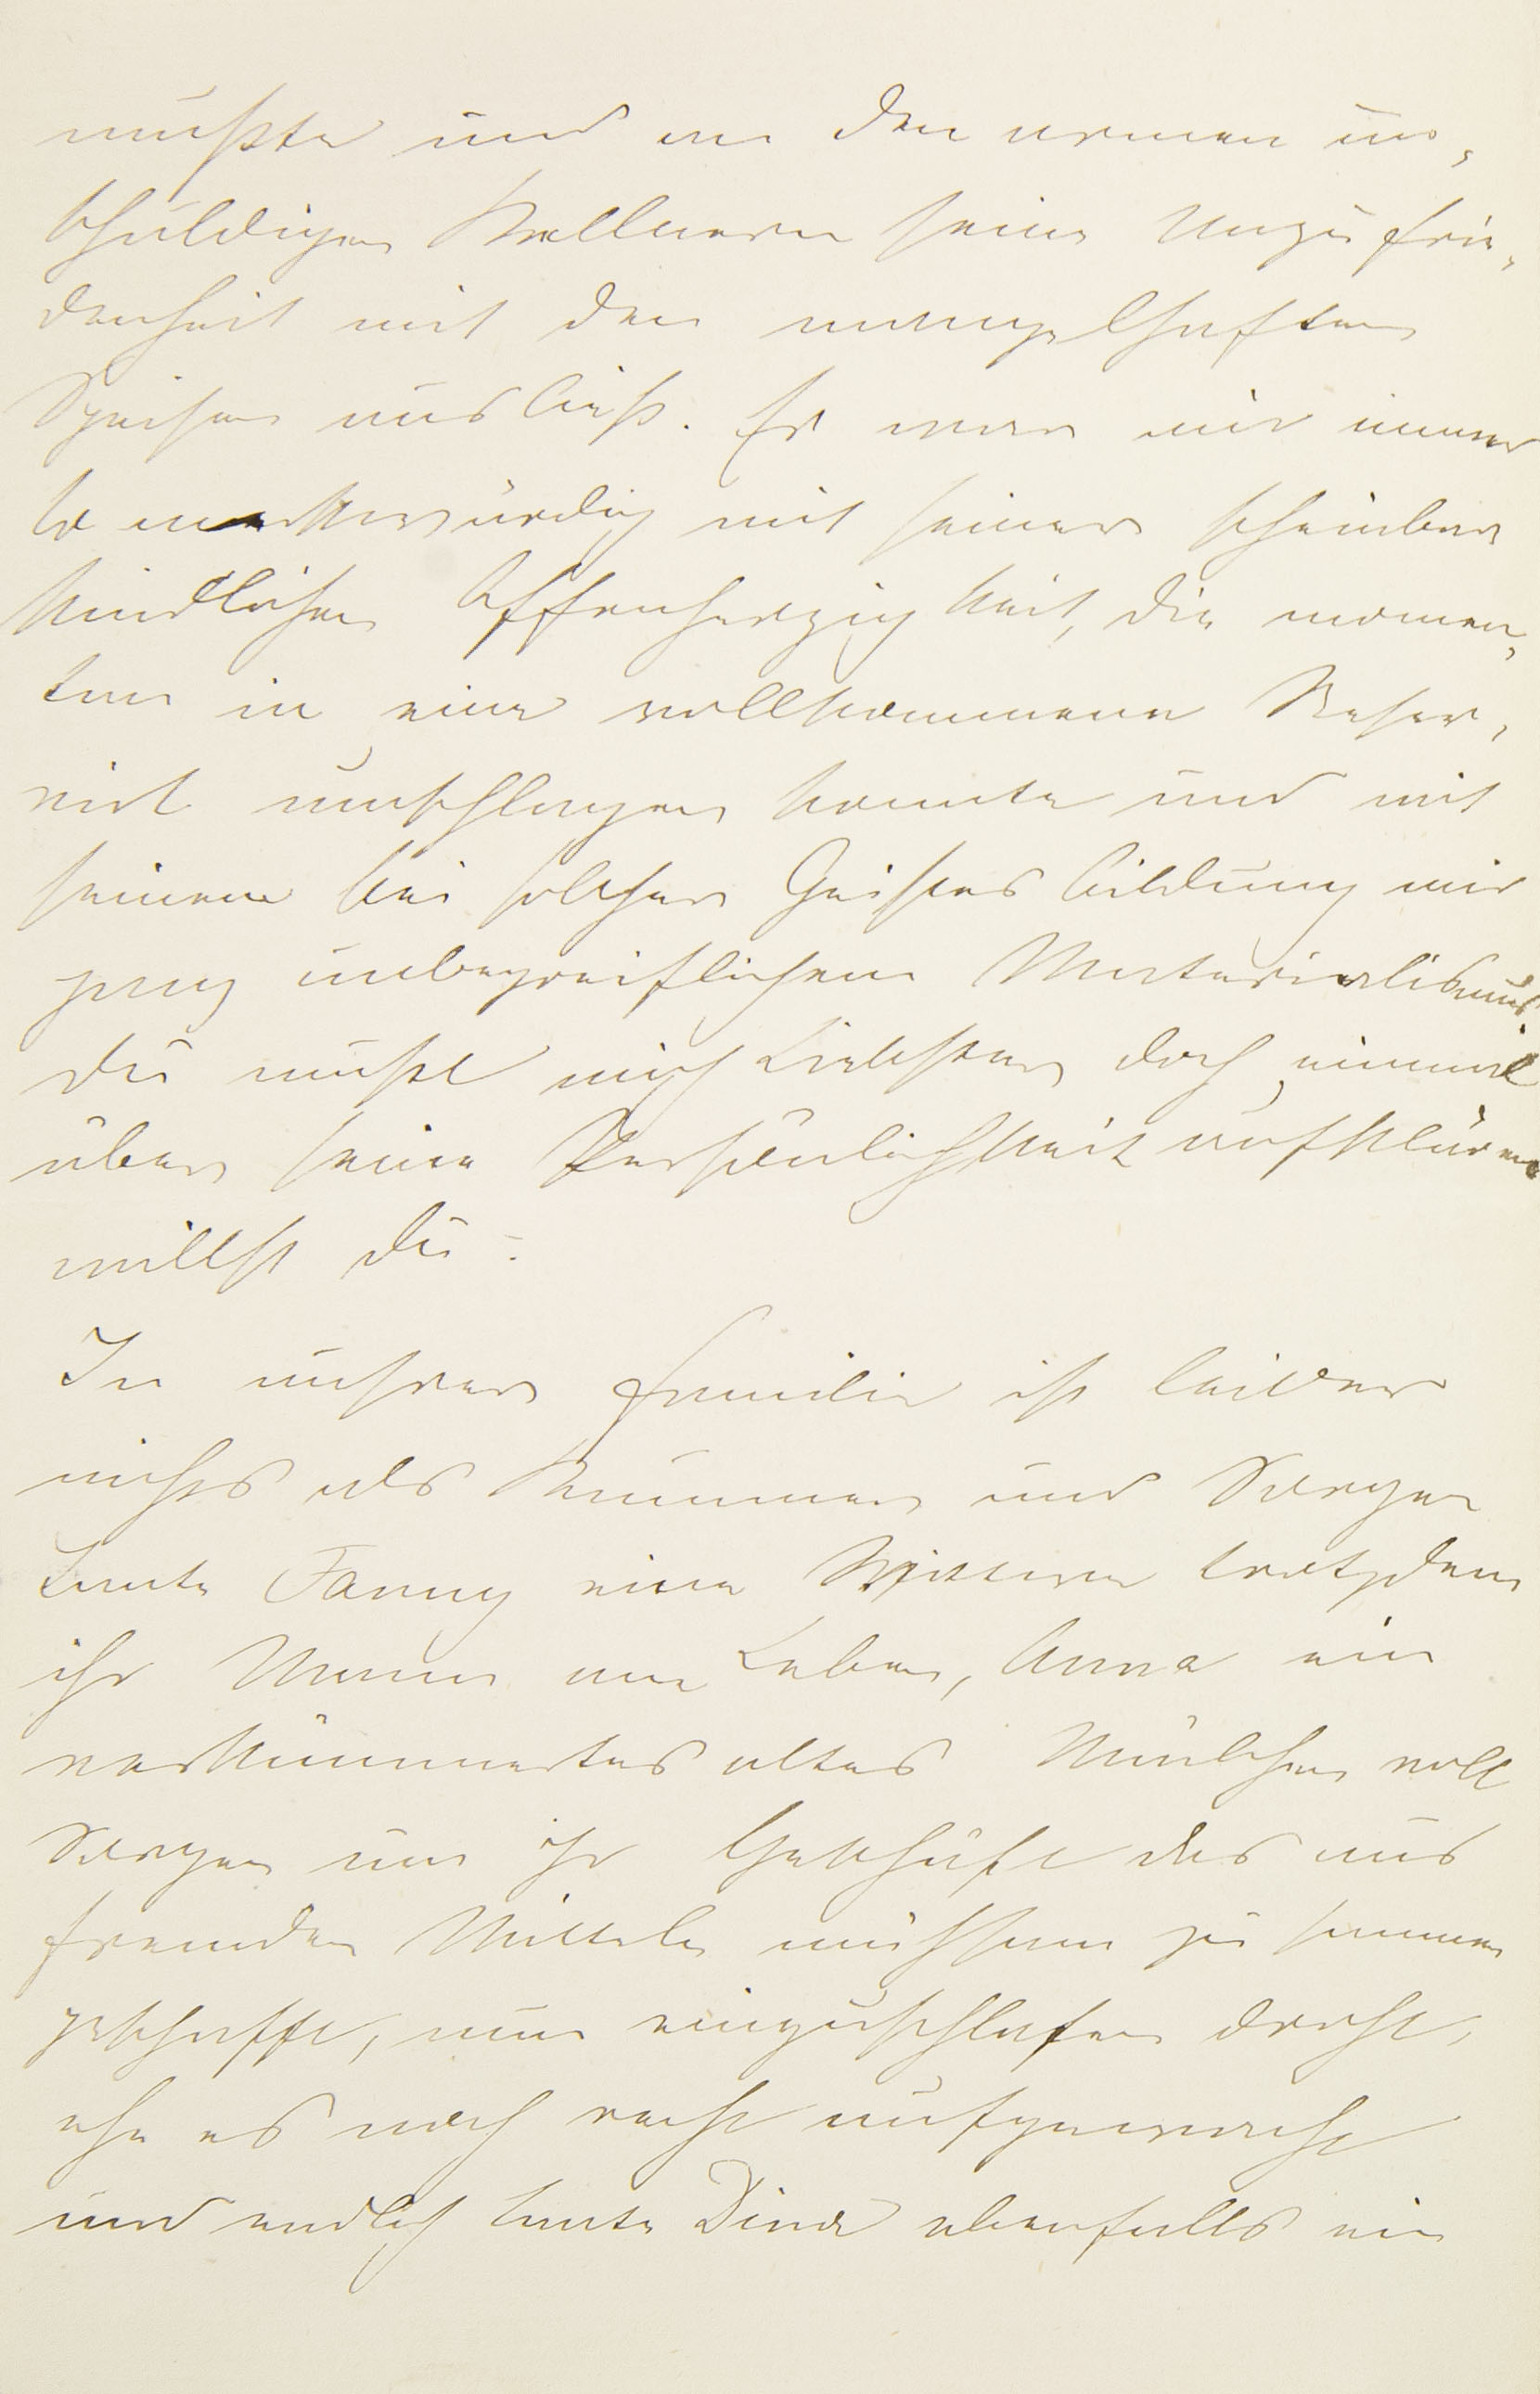 mußte und an den armen un-
schuldigen Kellnern seine Unzufrie-
denheit mit den mangelhaften
Speisen ausließ. Er war mir immer
so merkwürdig mit seiner scheinbar
kindlichen Offenherzigkeit, die momen-
tan in eine vollkommene Reser-
virt umschlagen konnte und mit
seinem bei solcher Geistesbildung mir
ganz unbegreiflichen Materialismus.
Du mußt mich Liebster doch einmal
über seine Persönlichkeit aufklären
willst Du?
In unsrer Familie ist leider
nichts als Kummer und Sorgen
Tante Fanny eine Wittwe trotzdem
ihr Mann am Leben, Anna ein
verkümmertes altes Mädchen voll
Sorgen um ihr Geschäft das aus
fremden Mitteln mühsam zusammen
geschafft, nun einzuschlafen droht,
ehe es noch recht aufgewacht
und endlich Tante Dina ebenfalls ein